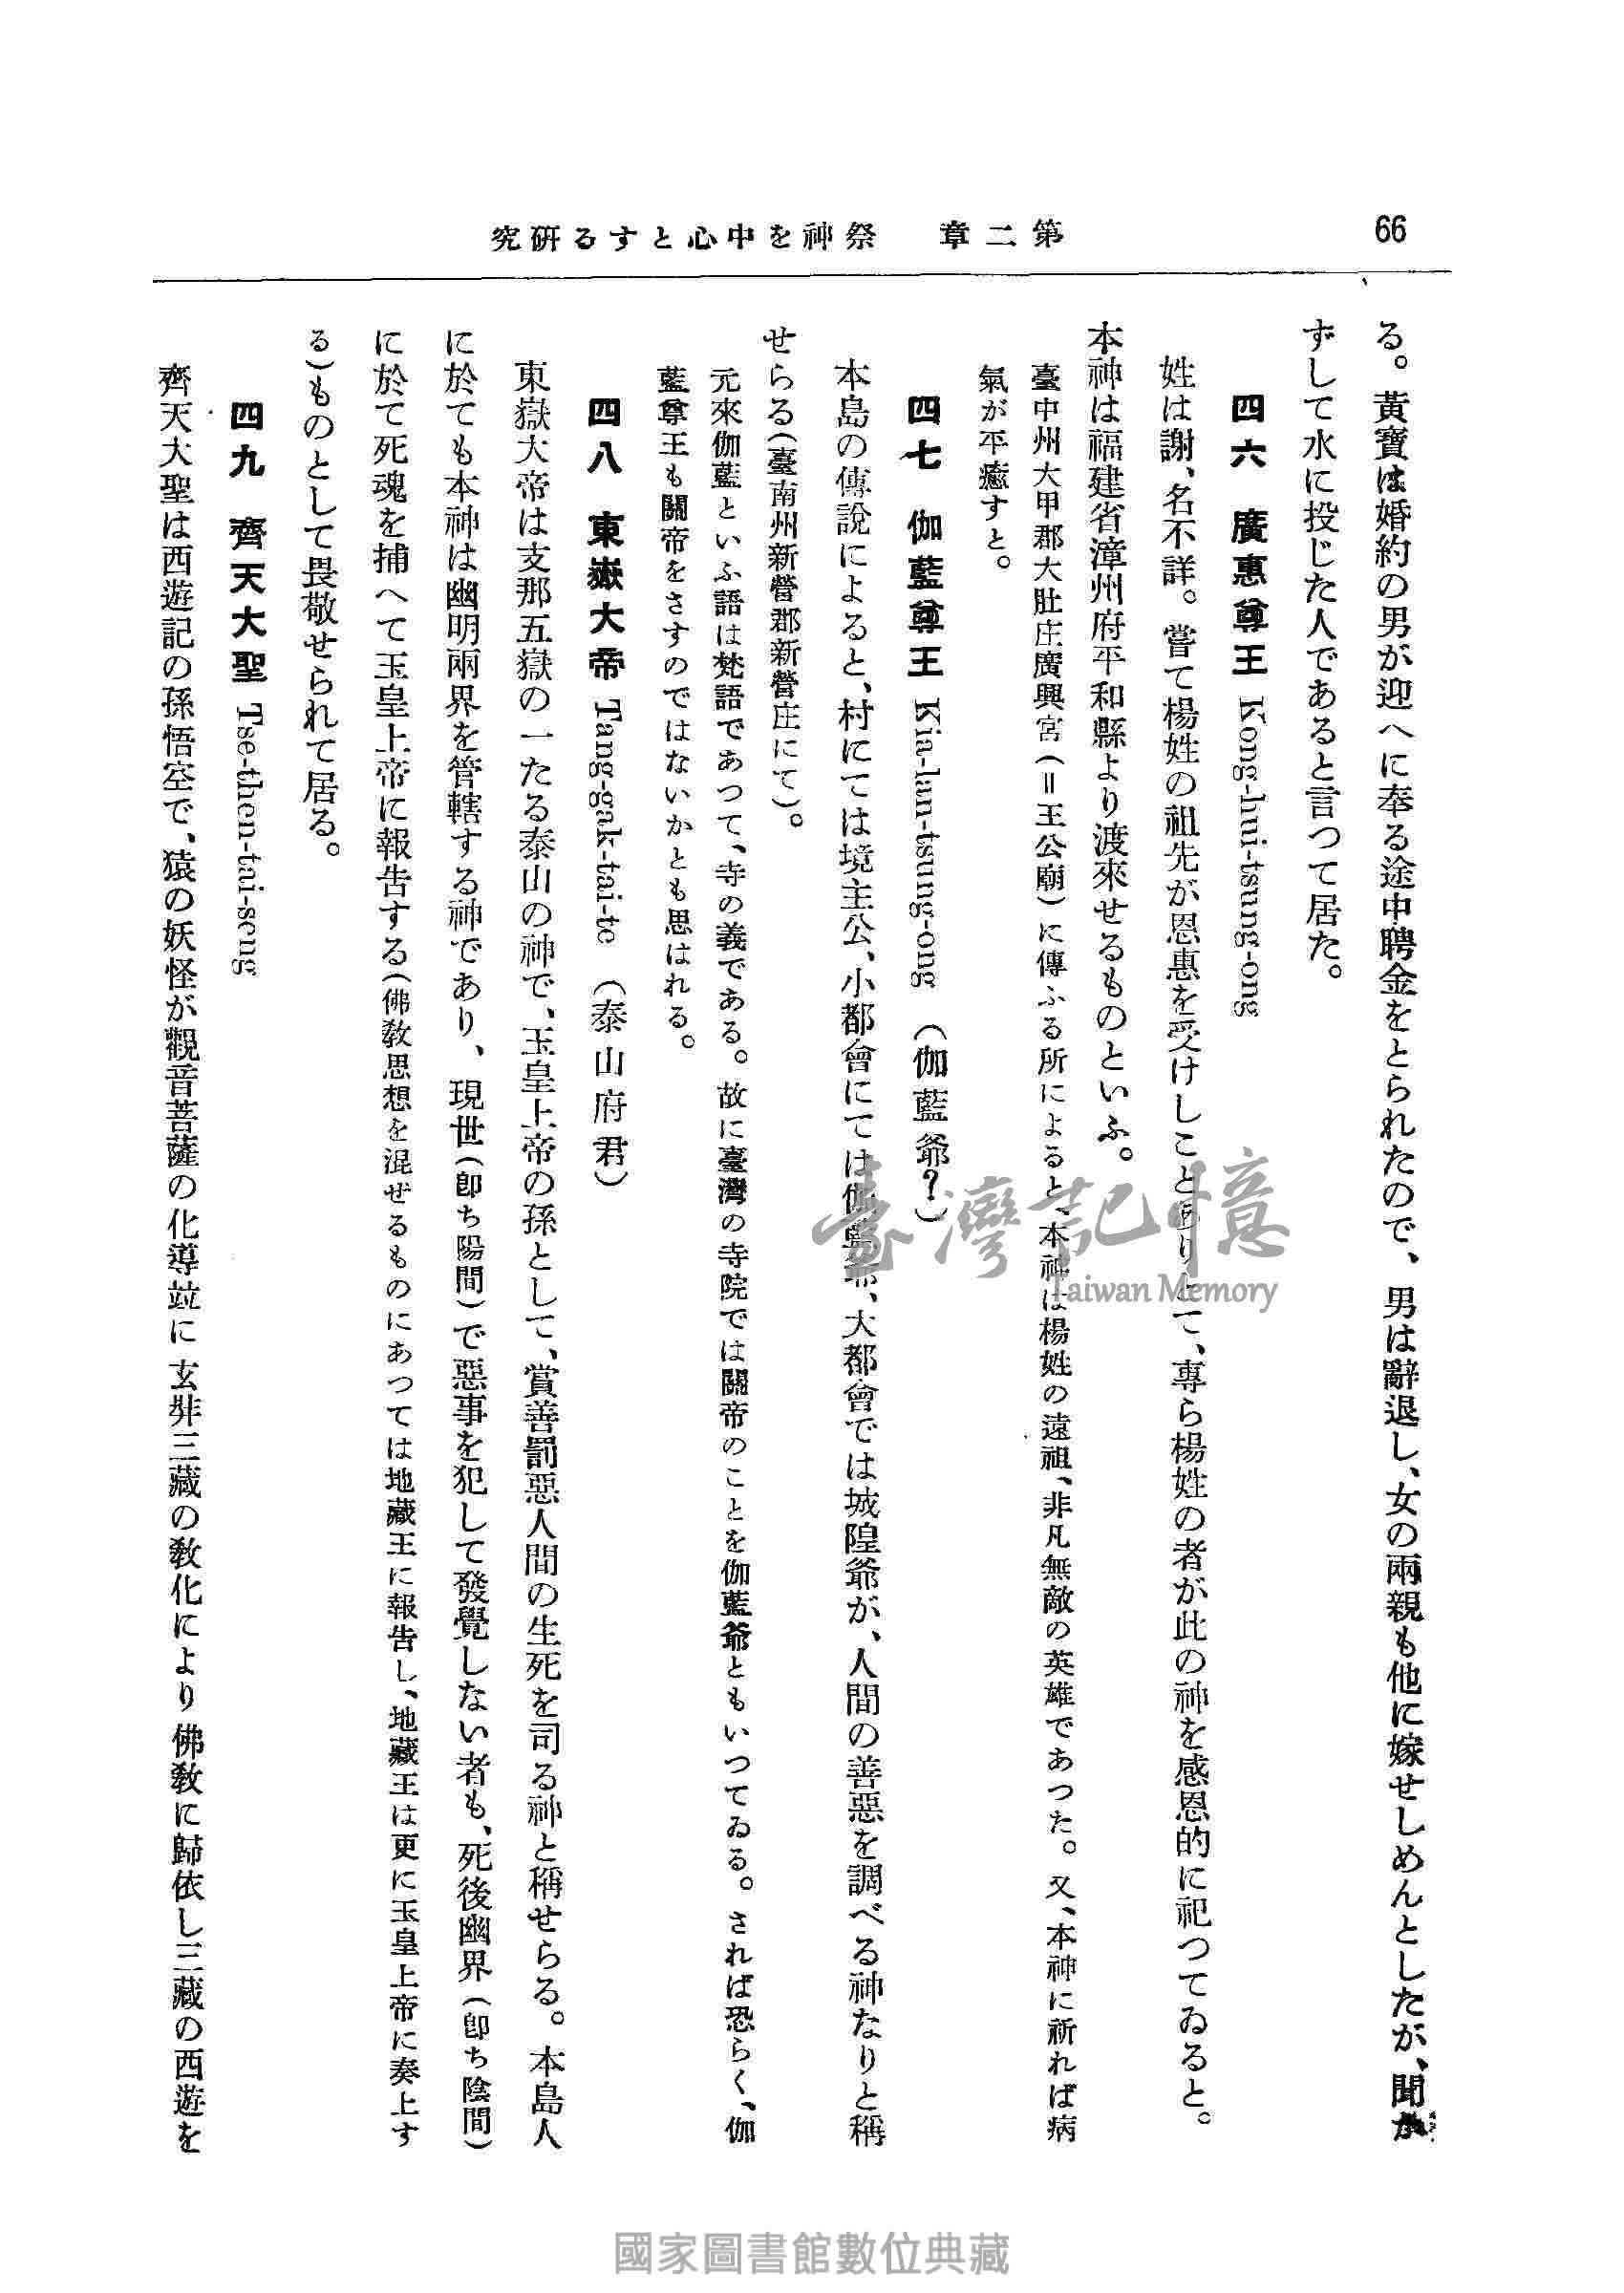 66
第二章　祭神を中心とする研究
る。黃寶は婚約の男が迎へに奉る途中聘金をとられたので、男は辭退し、女の兩親も他に嫁せしめんとしたが、聞か
ずして水に投じた人であると言つて居た。
四六　廣惠尊王 Kong-hui-tsung-ong
姓は謝、名不詳。嘗て楊姓の祖先が恩惠を受けしことありとて、專ら楊姓の者が此の神を感恩的に祀つてゐると。
本神は福建省漳州府平和縣より渡來せるものといふ。
臺中州大甲郡大肚庄廣興宮(＝王公廟)に傳ふる所によると、本神は楊姓の遠祖、非凡無敵の英雄であつた。又、本神に祈れば病
氣が平癒すと。
四七　伽藍尊王 Kia-lum-tsung-ong　(伽藍爺？)
本島の傳說によると、村にては境主公、小都會にては伽藍爺、大都會では城隍爺が、人間の善惡を調べる神なりと稱
せらる(臺南州新營郡新營庄にて)。
元來伽藍といふ語は梵語であつて、寺の義である。故に臺灣の寺院では關帝のことを伽藍爺ともいつてゐる。されば恐らく、伽
藍尊王も關帝をさすのではないかとも思はれる。
四八　東嶽大帝 Tang-gak-tai-te　(泰山府君)
東嶽大帝は支那五嶽の一たる泰山の神で、玉皇上帝の孫として、賞善罰惡人間の生死を司る神と稱せらる。本島人
に於ても本神は幽明兩界を管轄する神であり、現世(卽ち陽間)で惡事を犯して發覺しない者も、死後幽界(卽ち陰間)
に於て死魂を捕へて玉皇上帝に報告する(佛敎思想を混ぜるものにあつては地藏王に報告し、地藏王は更に玉皇上帝に奏上す
る)ものとして畏敬せられて居る。
四九　齊天大聖 Tse-then-tai-seng
齊天大聖は西遊記の孫悟空で、猿の妖怪が觀音菩薩の化導竝に玄弉三藏の敎化により佛敎に歸依し三藏の西遊を
臺灣記憶
Taiwan Memory
國家圖書館數位典藏